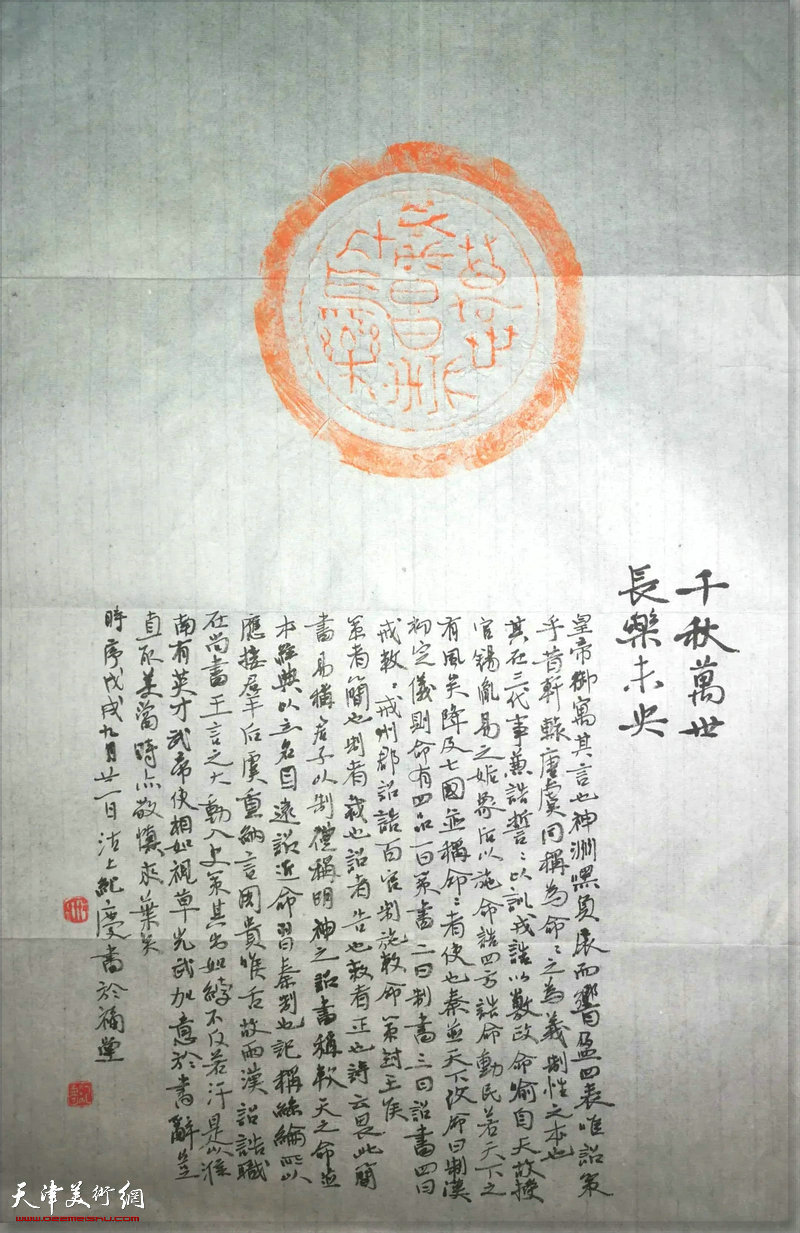 千秋萬世
長樂未央
皇帝御寓其言也神淵嘿負扆而響盈四表唯詔策
乎昔軒轅唐虞同稱為命〻之為義制性之本也
其在三代事兼誥誓〻以訓戎誥以敷政命喻自天故授
官錫胤易之姤象后以施命誥四方誥命動民若天下之
有風矣降及七國並稱命〻者使也秦並天下改命曰制漢
初定儀則命有四品一曰策書二曰制書三曰詔書四曰
戒敕〻戒州郡詔誥百官制施敕命策封王侯
策者簡也制者裁也詔者告也敕者正也詩云畏此簡
書易稱君子以制德稱明神之詔書稱敕天之命並
本經典以立名目遠詔近命習秦制也記稱絲綸所以
應接群后虞重納言國貴喉舌故兩漢詔誥職
在尚書王言之大動入史策其出如綍不反若汗是以淮
南有英才武帝使相如視草光武加意於書辭豈
直取美當時亦敬慎來葉矣
時序戊戌九月廿一日沽上紀慶書於堂
天津美術網
www.oeemeishu.com